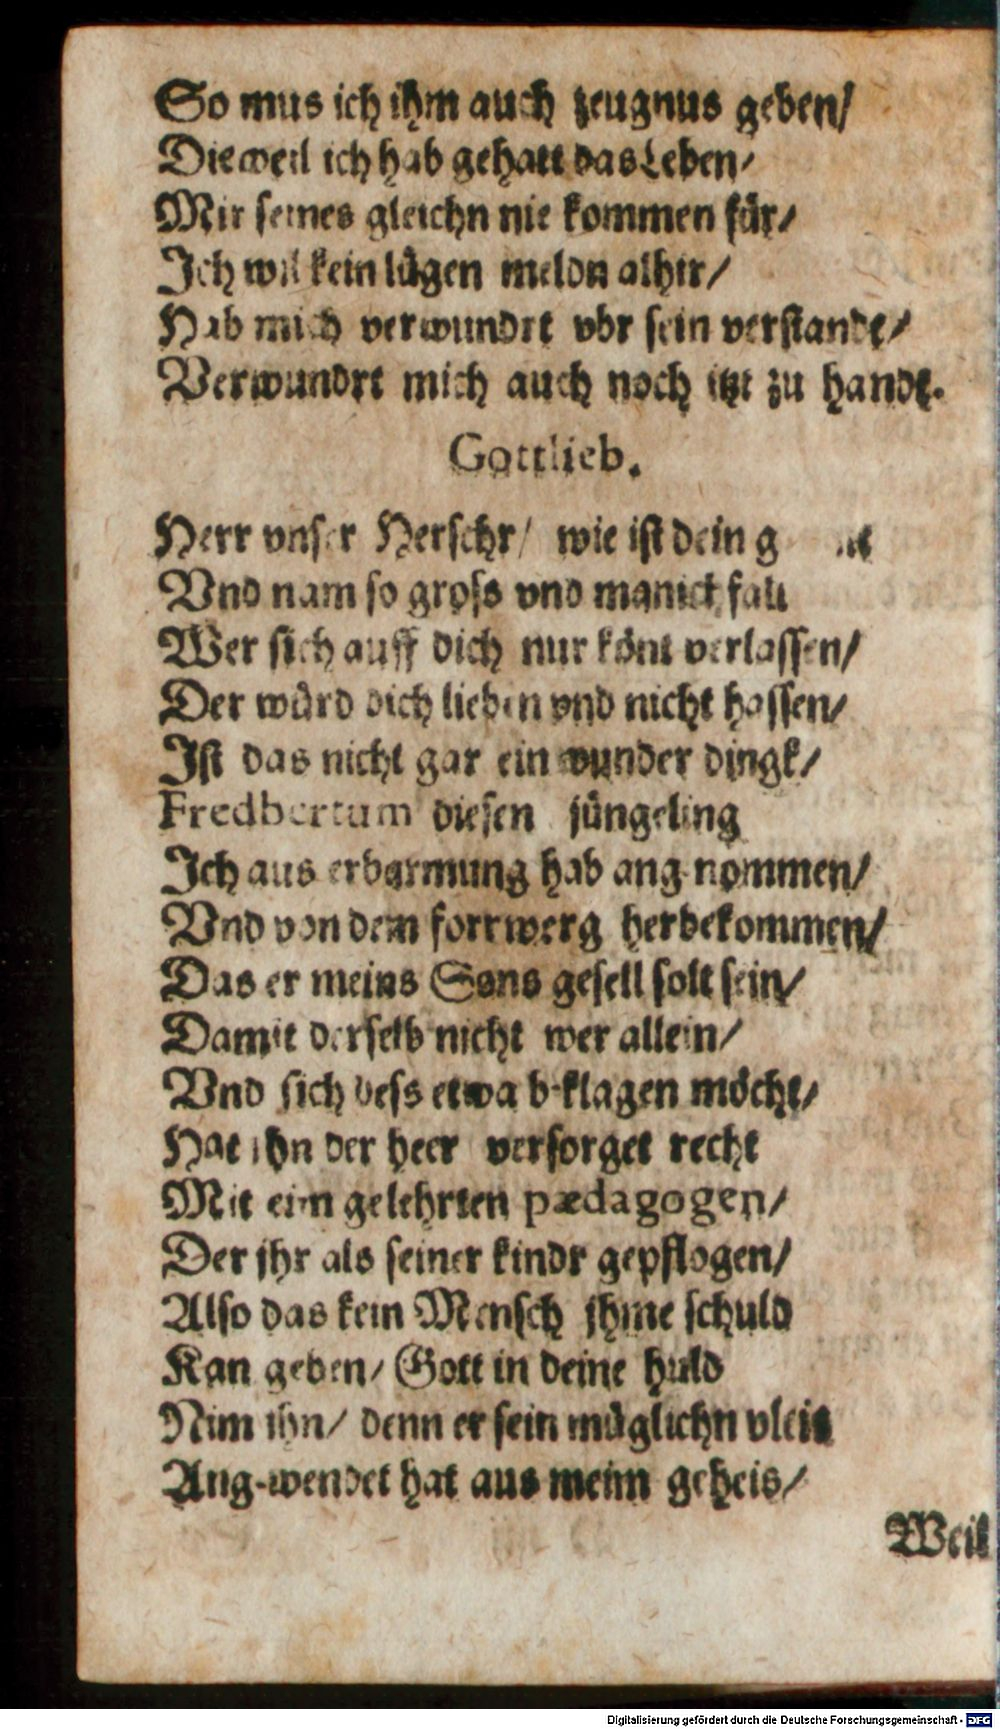 So mus ich ihm auch zeugnus geben/
Dieweil ich hab gehatt das Leben/
Mir seines gleichn nie kommen fuͤr/
Ich wil kein luͤgen meldn alhir/
Hab mich verwundrt vbr sein verstandt/
Verwundrt mich auch noch itzt zu handt.
Gottlieb.
Herr vnser Herschr/ wie ist dein
Vnd nam so gross vnd manickfalt
Wer sich auff dich nur koͤnt verlassen/
Der wuͤrd dich lieben vnd nicht hassen/
Ist das nicht gar ein wunder dingk/
Fredbertum diesen juͤngeling
Ich aus erbarmung hab angenommen/
Vnd von dem forrwerg herbekommen/
Das er meins Sons gesell solt sein/
Damit derselb nicht wer allein/
Vnd sich dess etwa beklagen moͤcht/
Hat ihn der heer versorget recht
Mit eim gelehrten pædagogen/
Der jhr als seiner kindr gepflogen/
Also das kein Mensch jhme schuld
Kan geben/ Gott in deine huld
Nim ihn/ denn er sein muͤglichn vleis
Angewendet hat aus meim geheis/
Weil
Digitalisierung gefördert durch die Deutsche Forschungsgemeinschaft - DFG